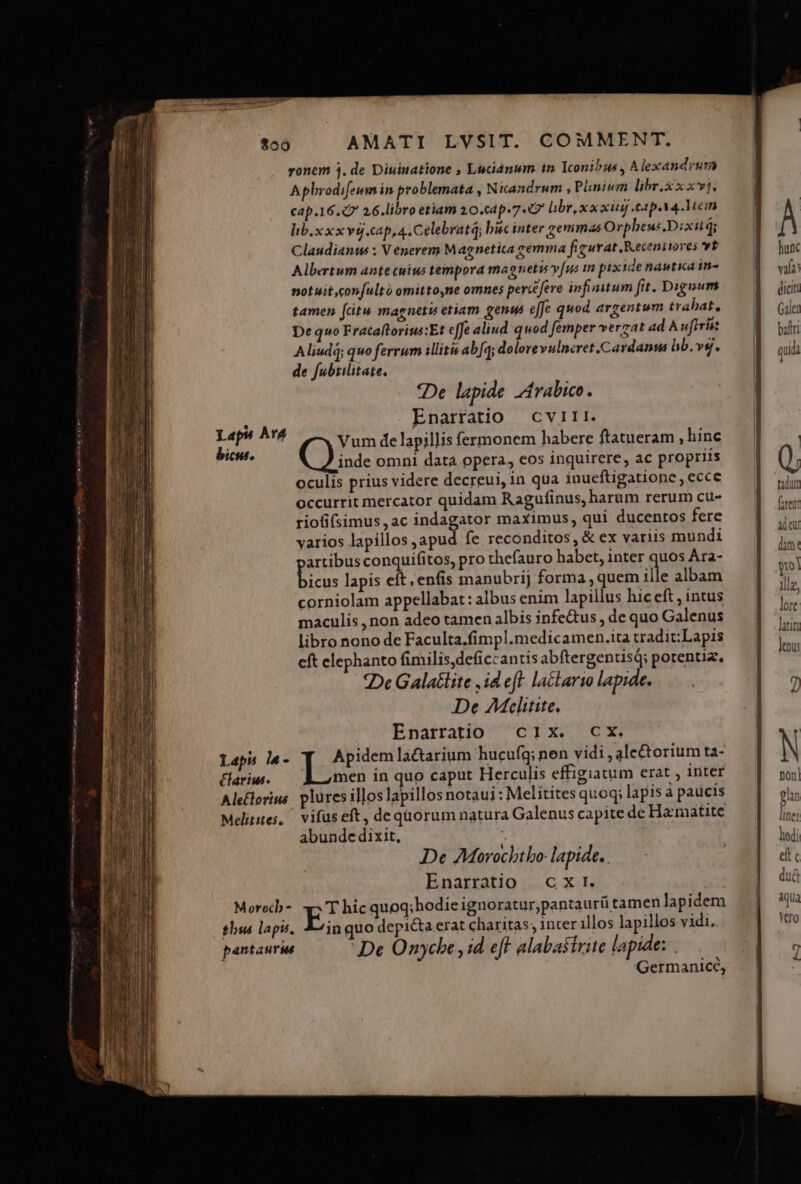 800 AMATI LVSIT. COMMENT.
ronem j. de Diuinatione , Lucianum in Iconibus , Alexandrum
Aphrodiseum in problemata , Nicandrum , Plinium libr.xxxvj.
cap.16.& 26.libro etiam 20.cap.7.& libr,xxxiiij.cap.14.Item
lib.xxxvij.cap.4.Celebratq; hūc inter gemmas Orpheus.Dixitq;
Claudianus : Venerem Magnetica gemma figurat.Recentiores vt
Albertum ante cuius tempora magnetis vsus in pixide nautica in-
notuit,consultò omitto,ne omnes percēsere infinitum sit. Dignum
tamen scitu magnetis etiam genus esse quod argentum trahat.
De quo Fracastorius:Et esse aliud quod semper vergat ad Austrū:
Aliudq; quo ferrum illitū absq; dolore vulneret.Cardanus lib.vij.
de subtilitate.
De lapide Arabico.
Enarratio CVIII.
Lapis Ara
bicus.
QVum de lapillis sermonem habere statueram , hinc
inde omni data opera, eos inquirere, ac propriis
oculis prius videre decreui, in qua inuestigatione, ecce
occurrit mercator quidam Ragusinus, harum rerum cu-
riosissimus, ac indagator maximus, qui ducentos fere
varios lapillos ,apud se reconditos, & ex variis mundi
partibus conquisitos, pro thesauro habet, inter quos Ara-
bicus lapis est, ensis manubrij forma, quem ille albam
corniolam appellabat: albus enim lapillus hic est, intus
maculis, non adeo tamen albis infectus, de quo Galenus
libro nono de Faculta.simpl.medicamen.ita tradit:Lapis
est elephanto similis,deficcantis abstergentisq; potentiæ.
De Galactite , id est lactario lapide.
De Melitite.
Enarratio CIX. CX.
Lapis la-
ctarius.
Alectorius
Melitites.
LApidem lactarium hucusq; non vidi, alectorium ta-
men in quo caput Herculis effigiatum erat , inter
plures illos lapillos notaui : Melitites quoq; lapis à paucis
visus est, de quorum natura Galenus capite de Hæmatite
abunde dixit,
De Morochtho lapide.
Enarratio CXI.
Moroch-
thus lapis.
pantaurus
ET hic quoq;hodie ignoratur,pantaurū tamen lapidem
in quo depicta erat charitas, inter illos lapillos vidi.
De Onyche, id est alabastrite lapide:
Germanicè,